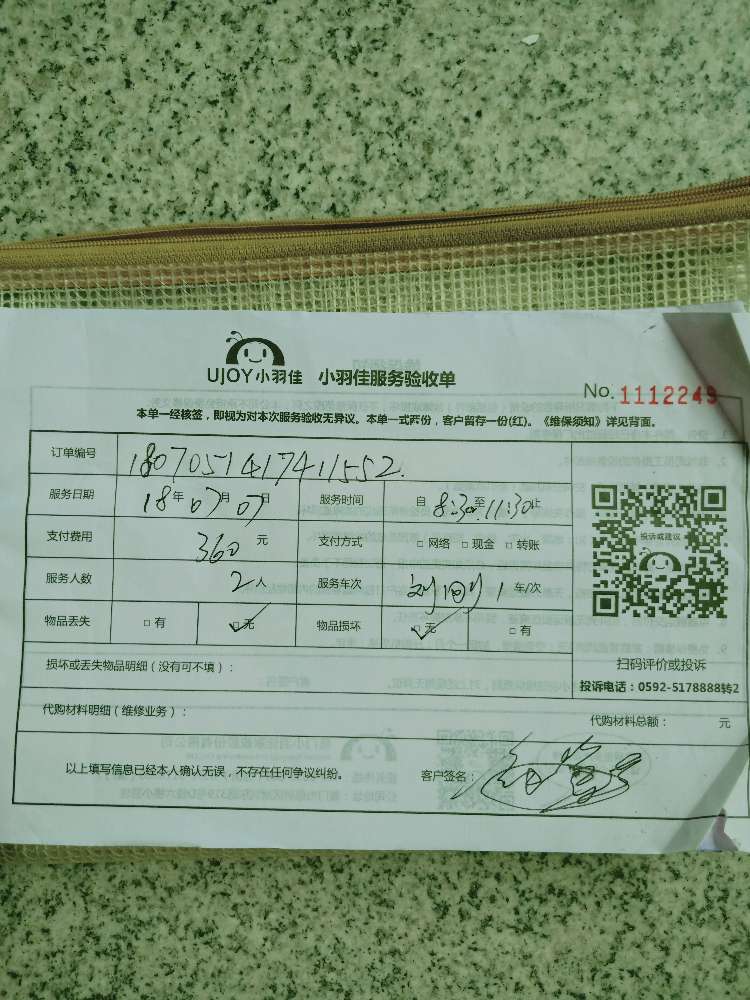 UJOY小羽佳 小羽佳服务验收单
No. 1112249
本单一经核签，即视为对本次服务验收无异议。本单一式两份，客户留存一份(红)。《维保须知》详见背面。
订单编号 1807051417411552.
服务日期 18年07月07日 服务时间 自8:30至11:30止
支付费用 360元 支付方式 □网络 □现金 □转账
投诉或建议
服务人数 2人 服务车次 1车/次
物品丢失 □有 ☑无 物品损坏 ☑无 □有
损坏或丢失物品明细（没有可不填）：
扫码评价或投诉
投诉电话：0592-5178888转2
代购材料明细（维修业务）：
代购材料总额： 元
以上填写信息已经本人确认无误，不存在任何争议纠纷。 客户签名：